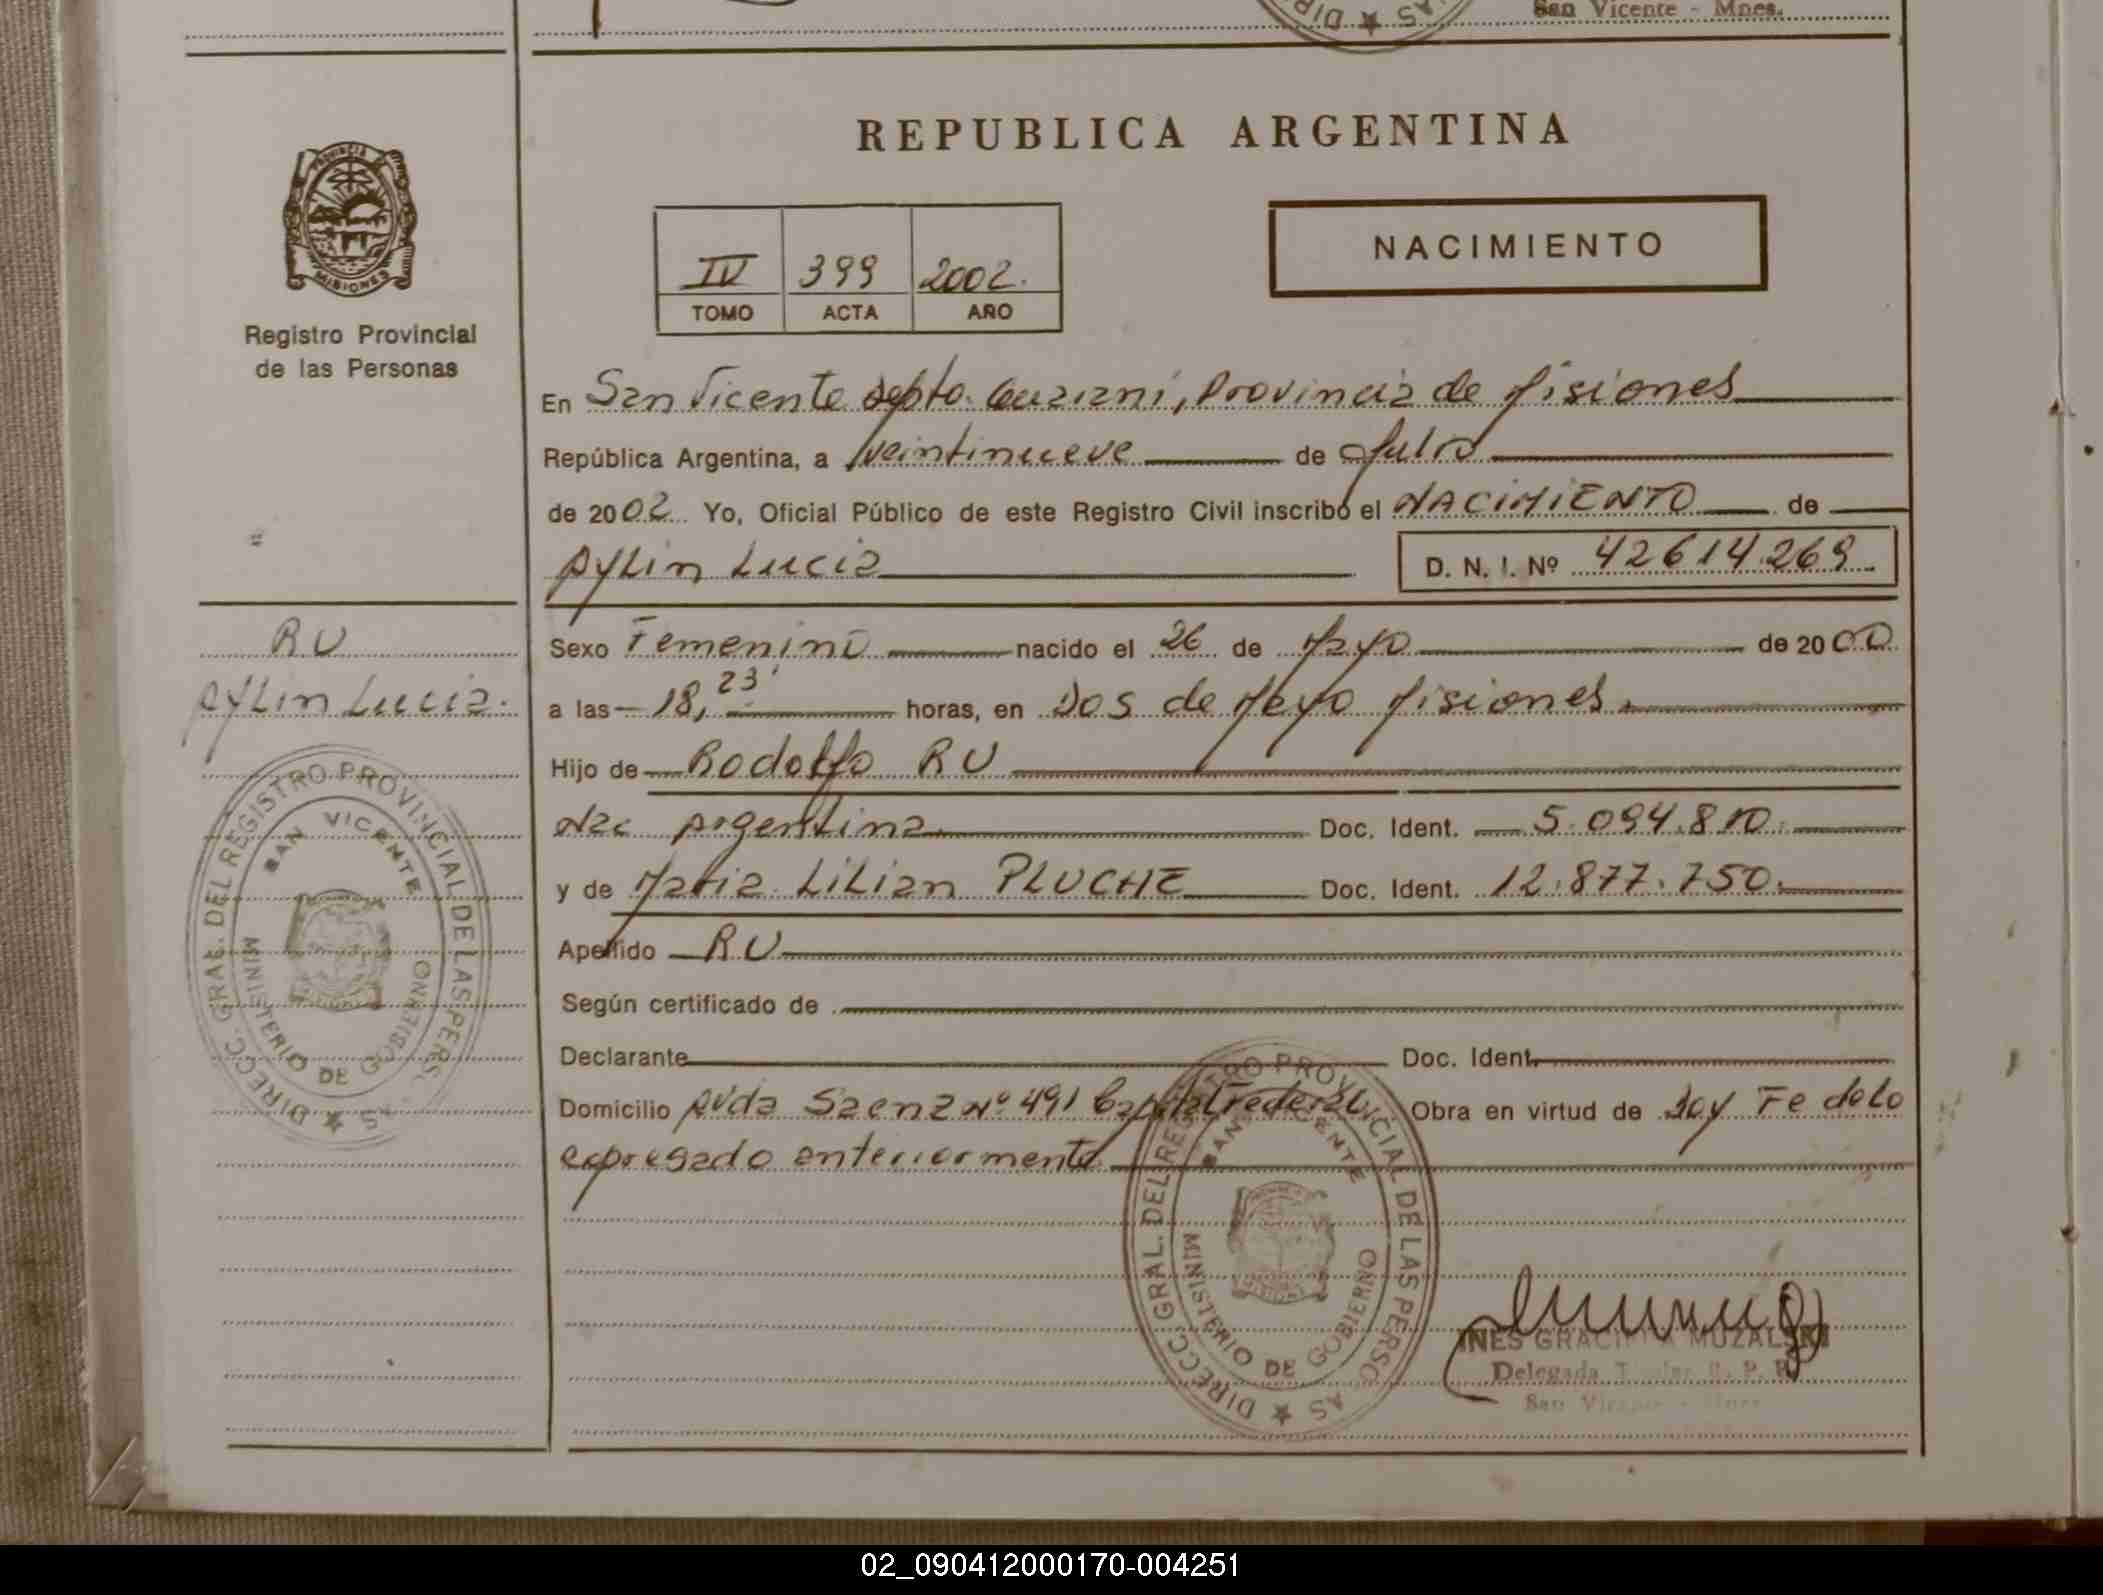 San Vicente - Mnes.
REPUBLICA ARGENTINA
PROVINCIA DE
MISIONES
Registro Provincial
de las Personas
IV 399 2002.
TOMO ACTA AÑO
NACIMIENTO
En San Vicente depto. Guarani, Provincia de Misiones
República Argentina, a veintinueve de Julio
de 2002. Yo, Oficial Público de este Registro Civil inscribo el NACIMIENTO de
Aylin Lucia D. N. I. Nº 42614.269.
RU
Aylin Lucia.
Sexo Femenino nacido el 26 de Mayo de 2000
a las 18, 23' horas, en Dos de Mayo Misiones.
Hijo de Rodolfo RU
Nac Argentina Doc. Ident. 5.094.810.
y de Maria Lilian PLUCHE Doc. Ident. 12.877.750.
Apellido RU
Según certificado de
Declarante Doc. Ident.
Domicilio Avda Saenz Nº 491 Capital Federal. Obra en virtud de Doy Fe de lo
expresado anteriormente
DIRECC. GRAL. DEL REGISTRO PROVINCIAL DE LAS PERSONAS
SAN VICENTE
MINISTERIO DE GOBIERNO
DIRECC. GRAL. DEL REGISTRO PROVINCIAL DE LAS PERSONAS
SAN VICENTE
MINISTERIO DE GOBIERNO
MISIONES
INES GRACIELA MUZALSKI
Delegada Titular R. P. P.
San Vicente - Mnes.
02_090412000170-004251